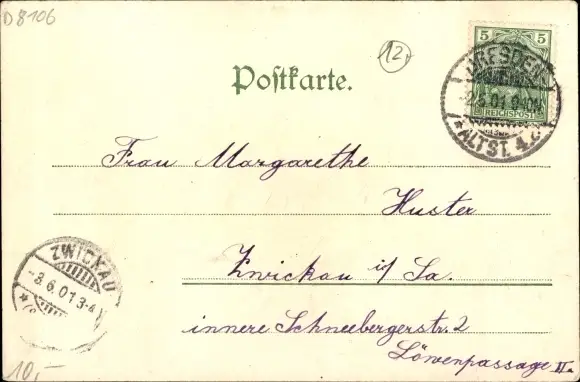 D 8106
12.
5 5
REICHSPOST
DRESDEN
ALTST. 4.
Postkarte.
Frau Margarethe
Huster
Zwickau i/Sa.
innere Schneebergerstr. 2
Löwenpassage II.
ZWICKAU
-3.6.01.3-4
10,-